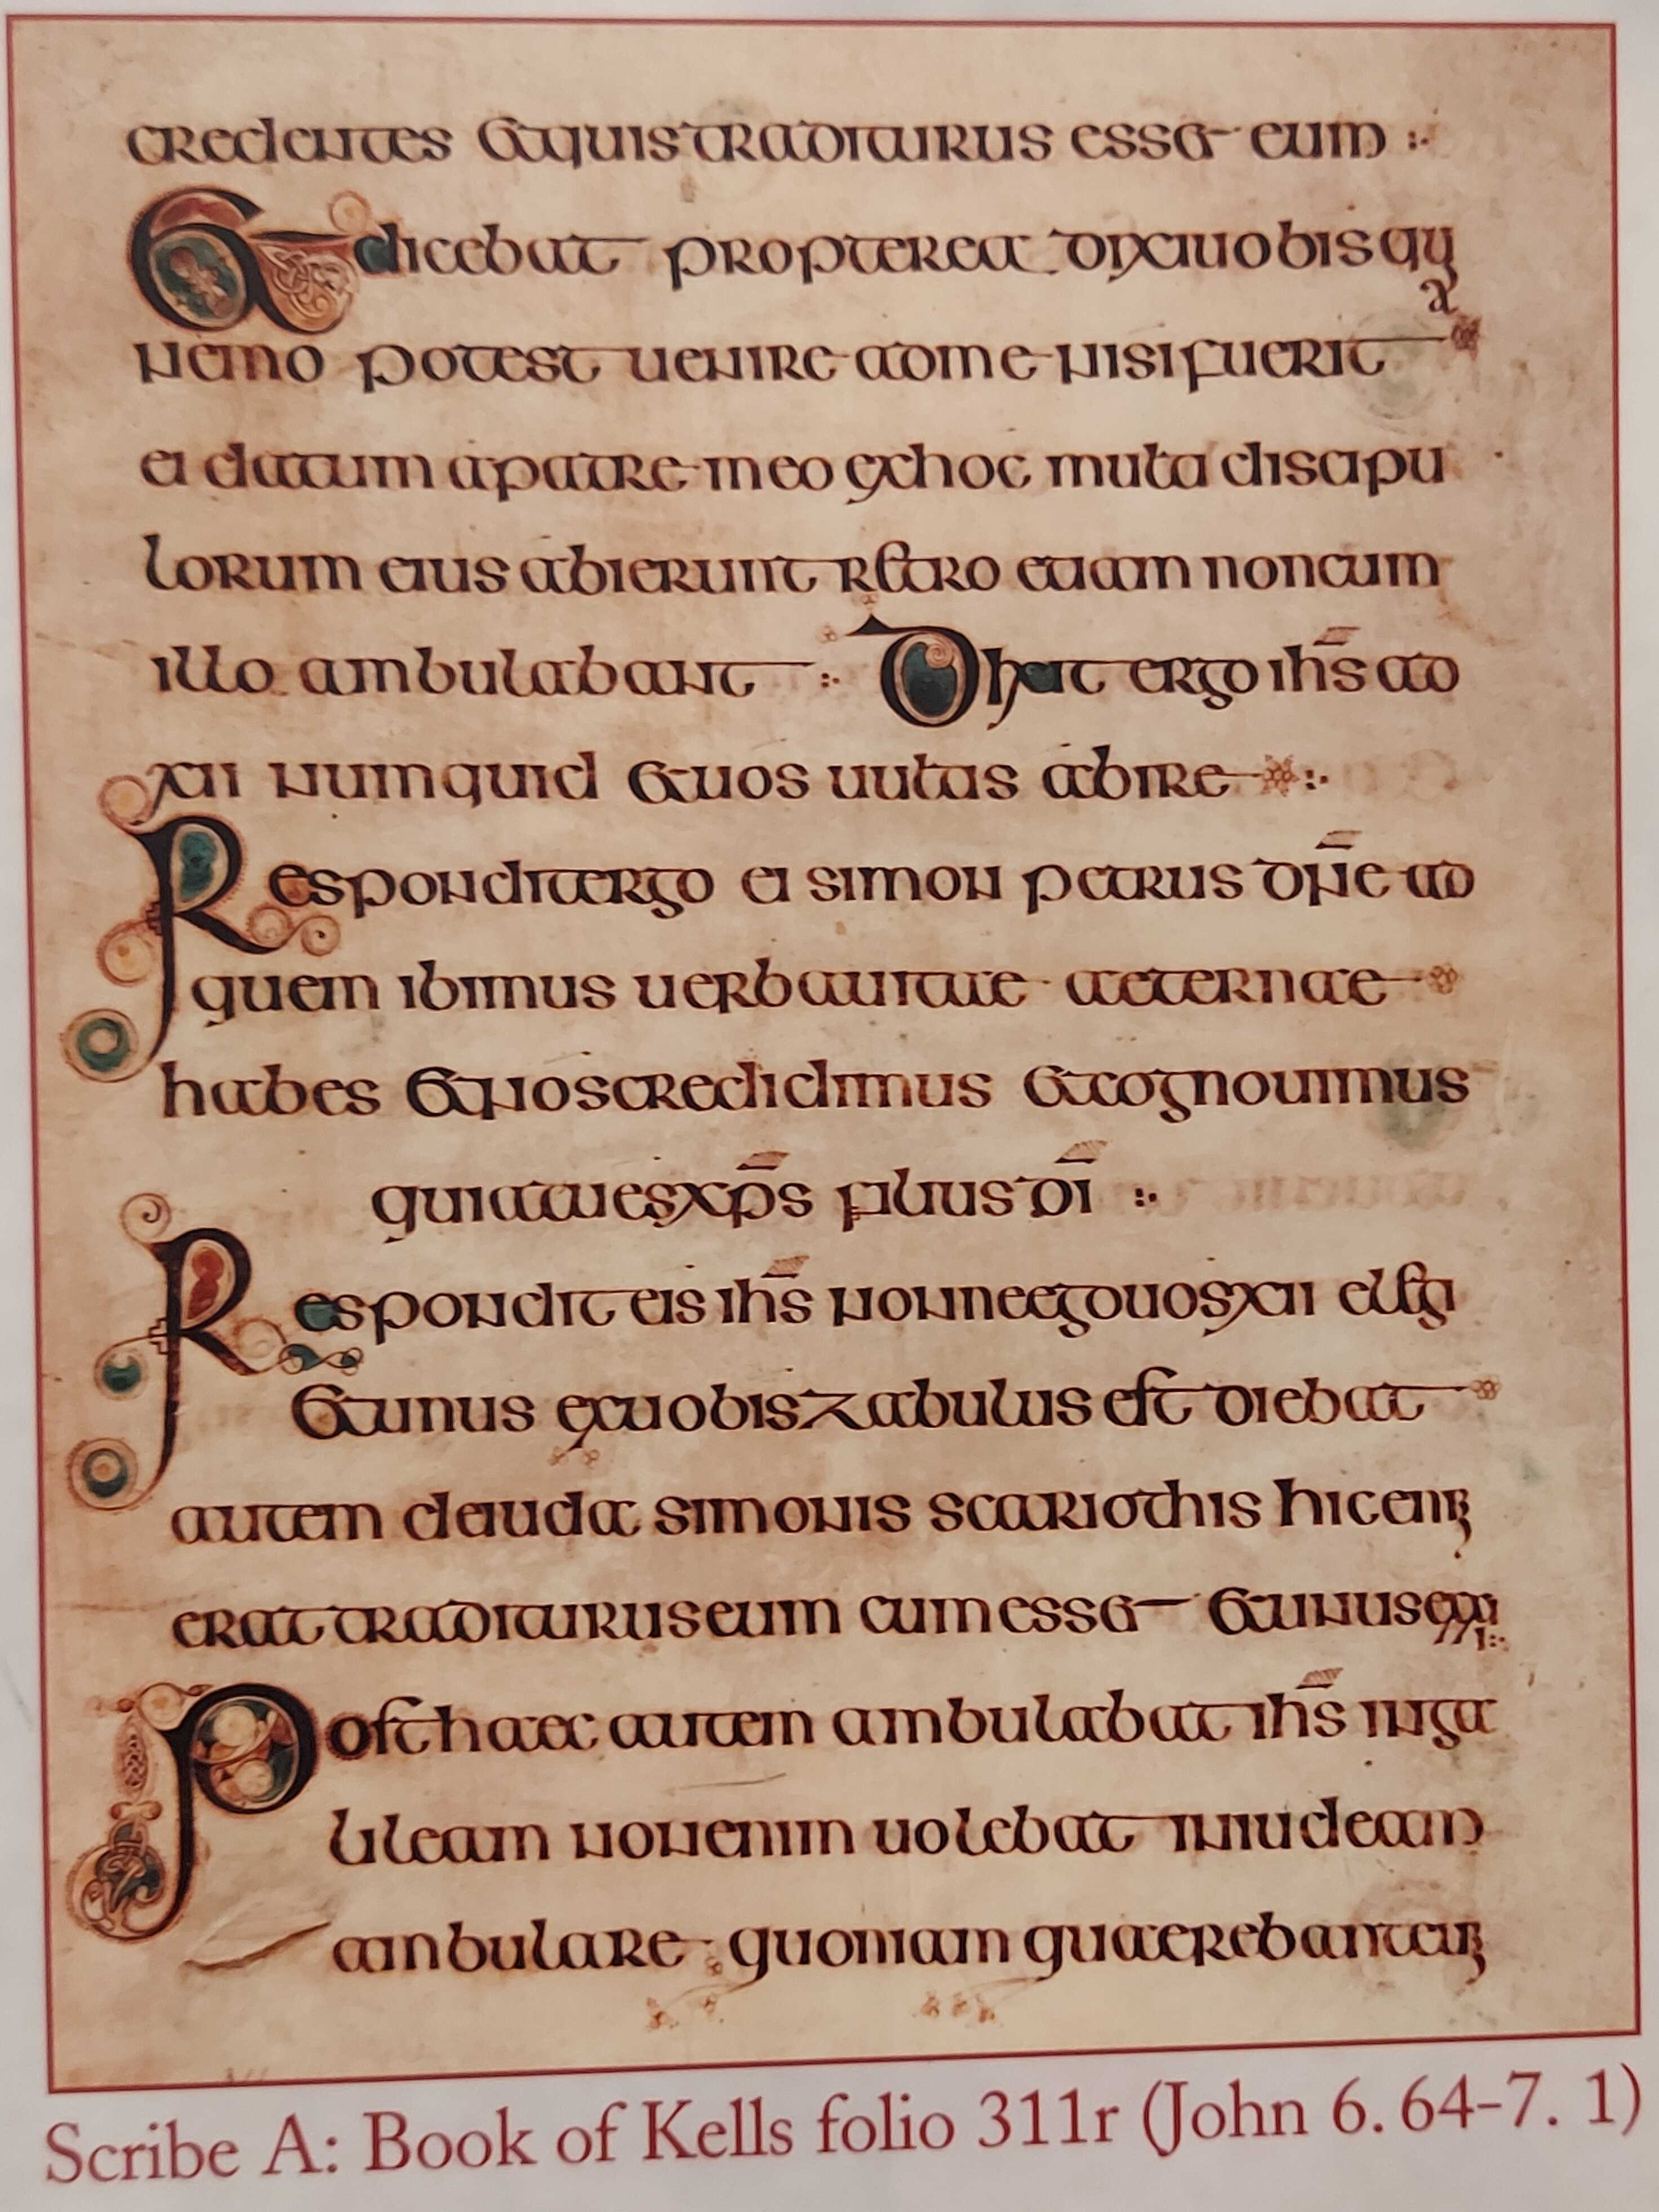 credentes et quis traditurus esset eum :·
Et dicebat propterea dixi uobis qui
a
nemo potest uenire ad me nisi fuerit
ei datum a patre meo ex hoc multi discipu
lorum eius abierunt retro et iam non cum
illo ambulabant :· Dixit ergo ihs̄ ad
xii numquid et uos uultis abire :·
Respondit ergo ei simon petrus dn̄e ad
quem ibimus uerba uitae aeternae
habes et nos credidimus et cognouimus
quia tu es xp̄s filius dī :·
Respondit eis ihs̄ nonne ego uos xii elegi
et unus ex uobis zabulus est diebat
autem de iuda simonis scariothis hic enim
erat traditurus eum cum esset et unus ex xi
i :·
Post haec autem ambulabat ihs̄ in ga
lileam non enim uolebat in iudeam
ambulare quoniam quaerebant eum
Scribe A: Book of Kells folio 311r (John 6. 64-7. 1)